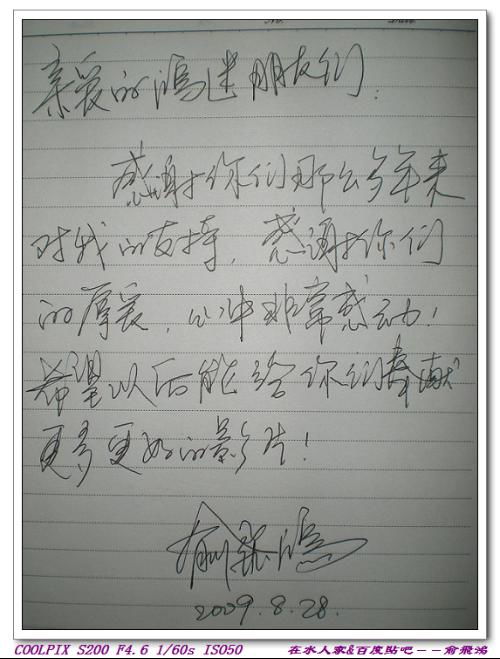 亲爱的鸿迷朋友们:
感谢你们那么多年来
对我的支持,感谢你们
的厚爱,心中非常感动!
希望以后能给你们奉献
更多更好的影片!
俞飞鸿
2009.8.28.
COOLPIX S200 F4.6 1/60s ISO50
在水人家&百度貼吧--俞飛鴻